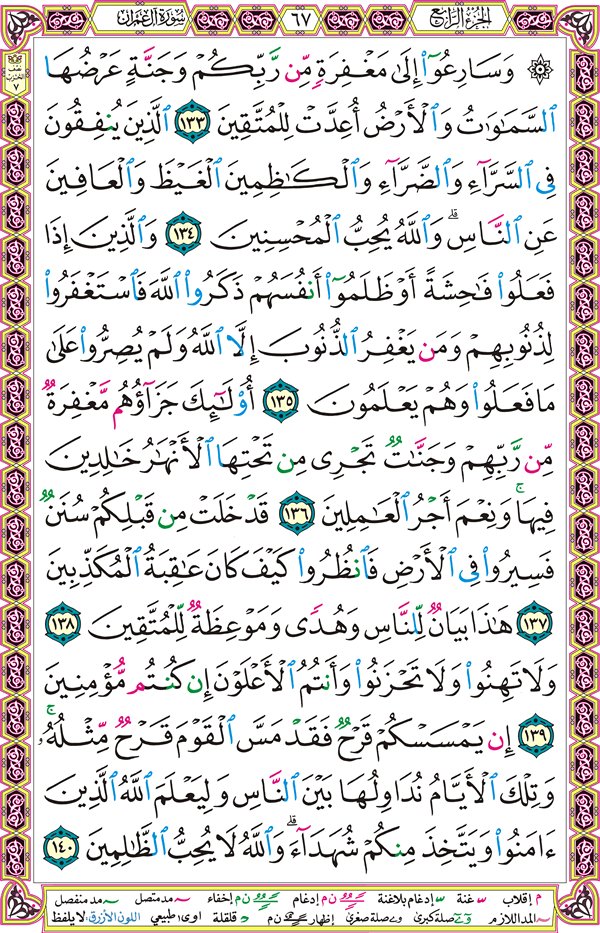 الجزء الرابع
٦٧
سورة آل عمران
۞ وَسَارِعُوٓا۟ إِلَىٰ مَغْفِرَةٍ مِّن رَّبِّكُمْ وَجَنَّةٍ عَرْضُهَا
ٱلسَّمَـٰوَٰتُ وَٱلْأَرْضُ أُعِدَّتْ لِلْمُتَّقِينَ ١٣٣ ٱلَّذِينَ يُنفِقُونَ
فِى ٱلسَّرَّآءِ وَٱلضَّرَّآءِ وَٱلْكَـٰظِمِينَ ٱلْغَيْظَ وَٱلْعَافِينَ
عَنِ ٱلنَّاسِ ۗ وَٱللَّهُ يُحِبُّ ٱلْمُحْسِنِينَ ١٣٤ وَٱلَّذِينَ إِذَا
فَعَلُوا۟ فَـٰحِشَةً أَوْ ظَلَمُوٓا۟ أَنفُسَهُمْ ذَكَرُوا۟ ٱللَّهَ فَٱسْتَغْفَرُوا۟
لِذُنُوبِهِمْ وَمَن يَغْفِرُ ٱلذُّنُوبَ إِلَّا ٱللَّهُ وَلَمْ يُصِرُّوا۟ عَلَىٰ
مَا فَعَلُوا۟ وَهُمْ يَعْلَمُونَ ١٣٥ أُو۟لَـٰٓئِكَ جَزَآؤُهُم مَّغْفِرَةٌ
مِّن رَّبِّهِمْ وَجَنَّـٰتٌ تَجْرِى مِن تَحْتِهَا ٱلْأَنْهَـٰرُ خَـٰلِدِينَ
فِيهَا ۚ وَنِعْمَ أَجْرُ ٱلْعَـٰمِلِينَ ١٣٦ قَدْ خَلَتْ مِن قَبْلِكُمْ سُنَنٌ
فَسِيرُوا۟ فِى ٱلْأَرْضِ فَٱنظُرُوا۟ كَيْفَ كَانَ عَـٰقِبَةُ ٱلْمُكَذِّبِينَ
١٣٧ هَـٰذَا بَيَانٌ لِّلنَّاسِ وَهُدًى وَمَوْعِظَةٌ لِّلْمُتَّقِينَ ١٣٨
وَلَا تَهِنُوا۟ وَلَا تَحْزَنُوا۟ وَأَنتُمُ ٱلْأَعْلَوْنَ إِن كُنتُم مُّؤْمِنِينَ
١٣٩ إِن يَمْسَسْكُمْ قَرْحٌ فَقَدْ مَسَّ ٱلْقَوْمَ قَرْحٌ مِّثْلُهُۥ ۚ
وَتِلْكَ ٱلْأَيَّامُ نُدَاوِلُهَا بَيْنَ ٱلنَّاسِ وَلِيَعْلَمَ ٱللَّهُ ٱلَّذِينَ
ءَامَنُوا۟ وَيَتَّخِذَ مِنكُمْ شُهَدَآءَ ۗ وَٱللَّهُ لَا يُحِبُّ ٱلظَّـٰلِمِينَ ١٤٠
م إقلاب غنة إدغام بلاغنة ن م إدغام ن م إخفاء مد متصل مد منفصل
المد اللازم صلة كبرى صلة صغرى إظهار ن م قلقلة اوى: طبيعي اللون الأزرق: لا يلفظ